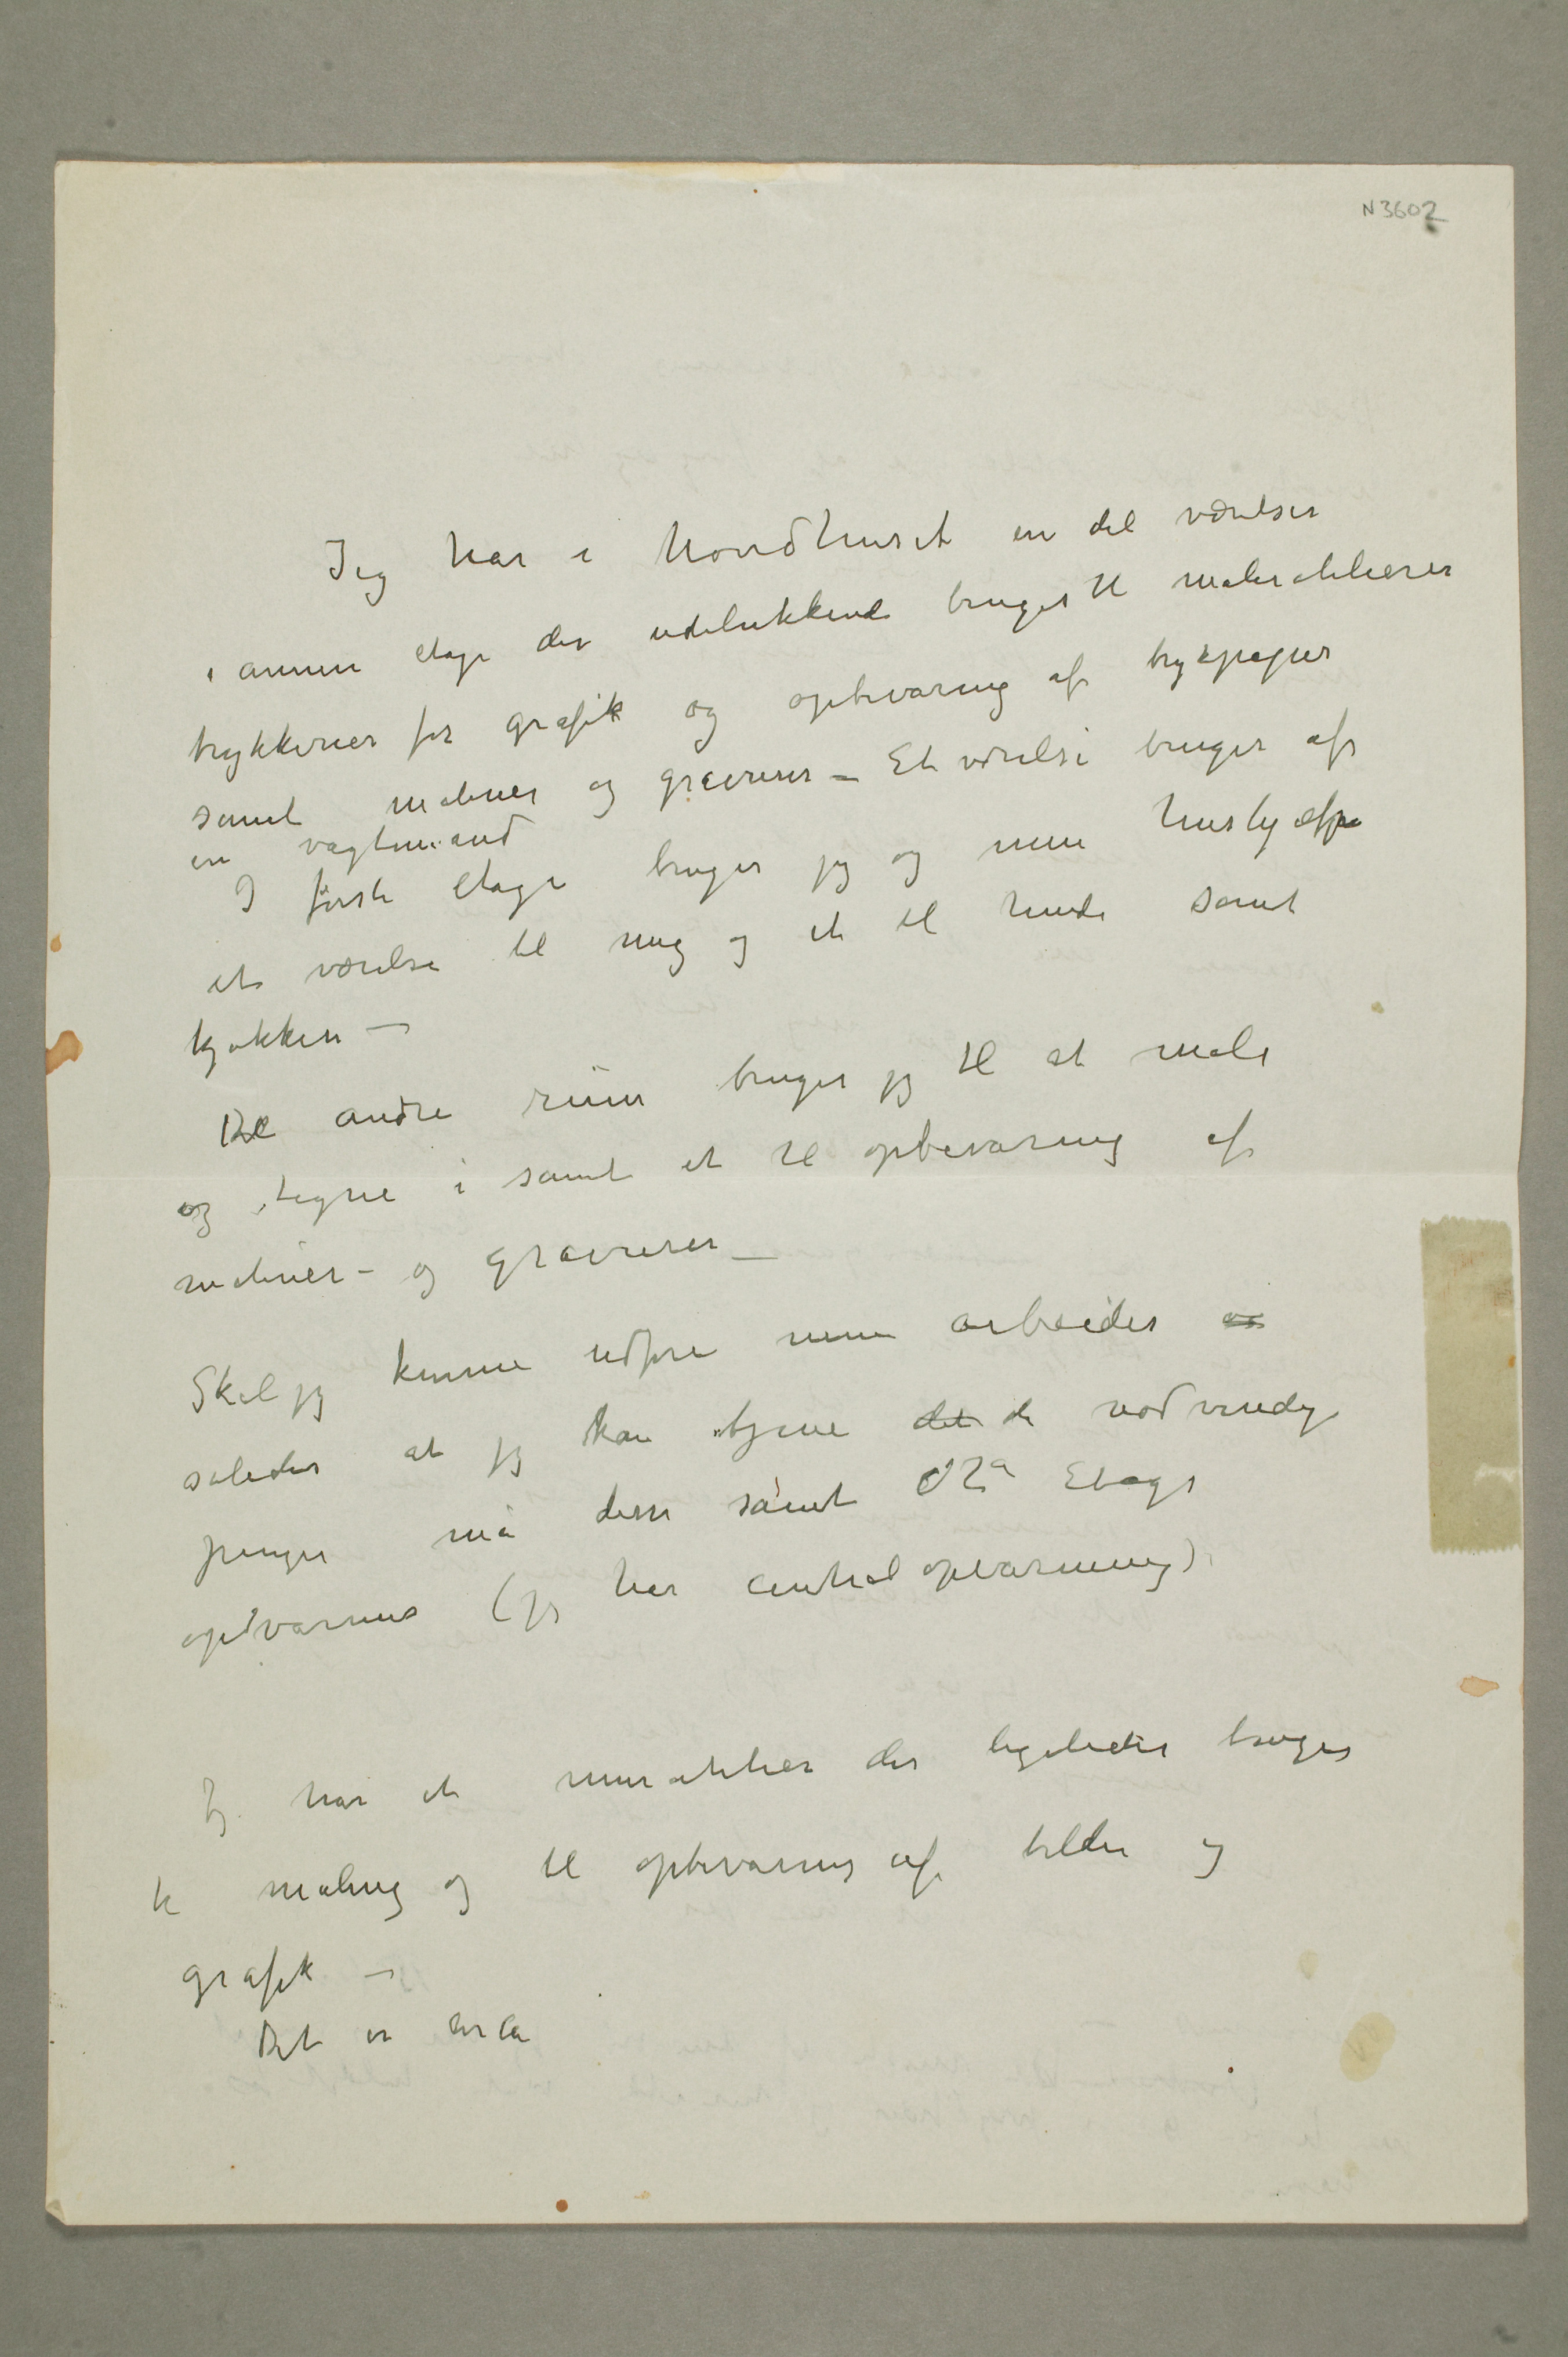 N 3602
Jeg har i hovedhuset en del værelser
i annen etage der udelukkende bruges til maleratelierer
trykkerier for grafik og opbevaring af trykpapir
samt malerier og gravurer – Et værelse bruges af
en vagtmand
I første etage bruger jeg og min hushjælp
et værelse til mig og et til hende samt
kjøkken –
De andre rum bruger jeg til at male
og tegne i samt et til opbevaring af
malerier – og gravurer –
Skal jeg kunne udføre mine arbeider
således at jeg kan tjene det de nødvendige
penger må disse samt 2n Etage
opvarmes (jeg har centralopvarming)
Jeg har et muratelier der ligeledes bruges
til maling og til opbevaring af billeder og
grafik –
Det er cirka